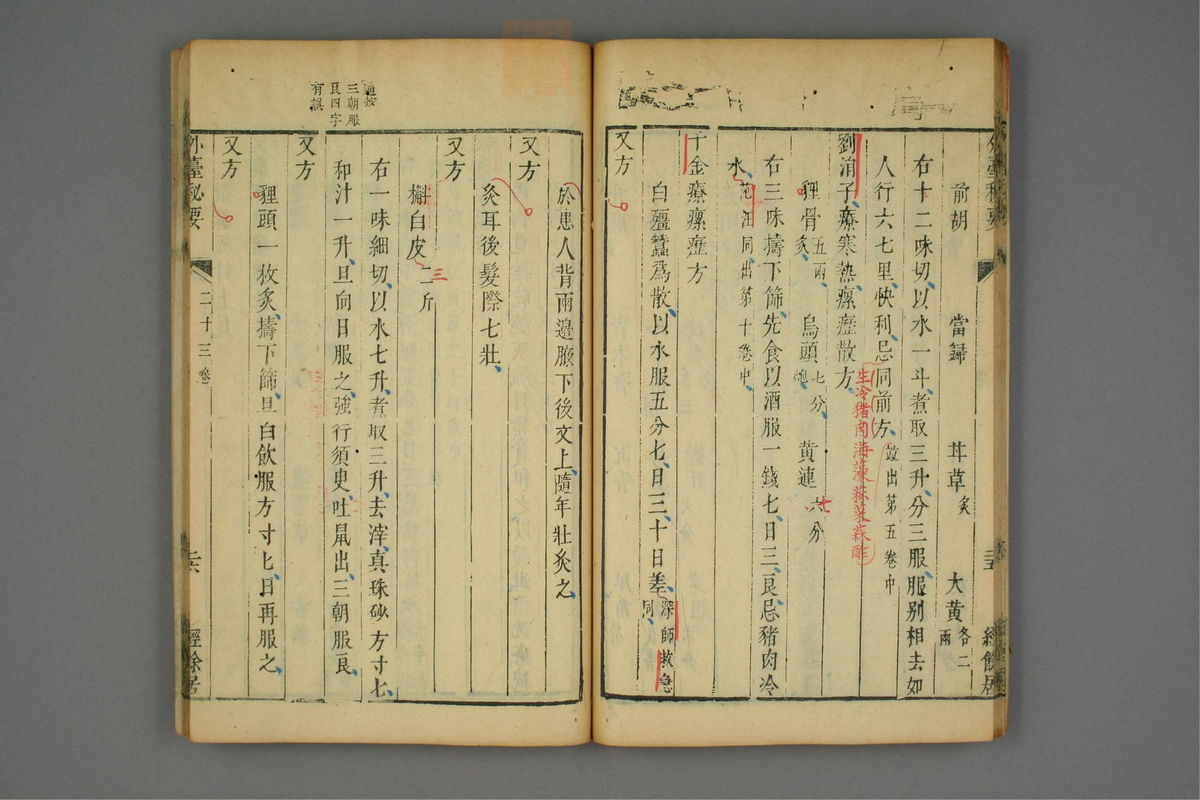 前胡 當歸 茸草炙 大黃各二兩
右十二味切以水一斗煮取三升分三服服別相去如
人行六七里快利忌同前方並出第五卷中
生冷猪肉海藻菘菜蒜醋
劉涓子療寒熱瘰癧散方
狸骨五兩炙 烏頭七分炮 黃連六分
七
右三味擣下篩先食以酒服一錢七日三良忌豬肉冷
水范汪同出第十卷中
千金療瘰癧方
白殭蠶爲散以水服五分七日三十日差深師救急同
又方
於患人背兩邊腋下後文上隨年壯灸之
又方
灸耳後髮際七壯
又方
槲白皮二斤
三
右一味細切以水七升煮取三升去滓真珠砂方寸七
和汁一升旦向日服之強行須臾吐鼠出三朝服良
通按三朝服良四字有誤
又方
貍頭一枚炙擣下篩旦白飲服方寸七日再服之
又方
外臺秘要 二十三卷 二六 經餘居